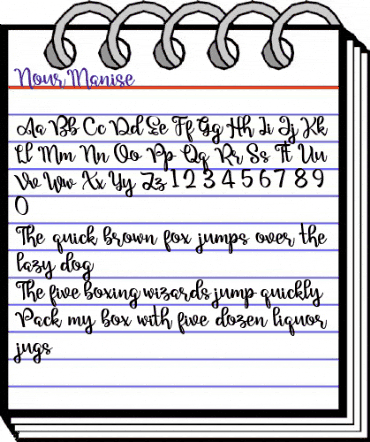 Nour Manise
Aa Bb Cc Dd Ee Ff Gg Hh Ii Jj Kk
Ll Mm Nn Oo Pp Qq Rr Ss Tt Uu
Vv Ww Xx Yy Zz 1 2 3 4 5 6 7 8 9
0
The quick brown fox jumps over the
lazy dog
The five boxing wizards jump quickly
Pack my box with five dozen liquor
jugs